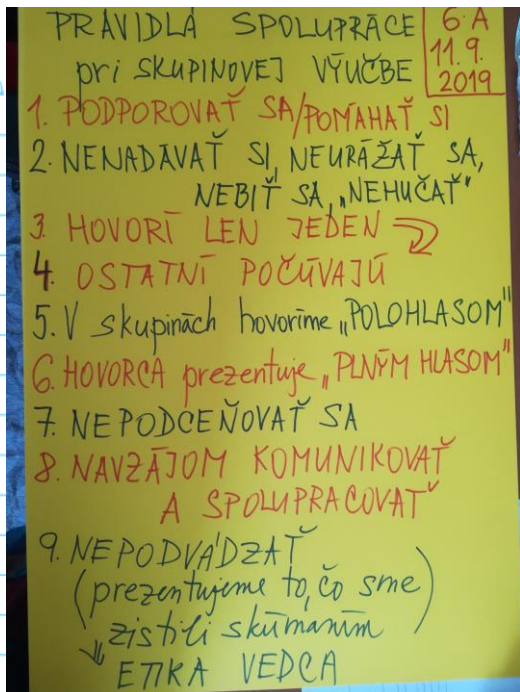 PRAVIDLÁ SPOLUPRÁCE
pri SKUPINOVEJ VÝUČBE
6. A
11. 9.
2019
1. PODPOROVAŤ SA/POMÁHAŤ SI
2. NENADÁVAŤ SI, NEURÁŽAŤ SA,
NEBIŤ SA, „NEHUČAŤ"
3. HOVORÍ LEN JEDEN
4. OSTATNÍ POČÚVAJÚ
5. V skupinách hovoríme „POLOHLASOM"
6. HOVORCA prezentuje „PLNÝM HLASOM"
7. NEPODCEŇOVAŤ SA
8. NAVZÁJOM KOMUNIKOVAŤ
A SPOLUPRACOVAŤ
9. NEPODVÁDZAŤ
(prezentujeme to, čo sme
zistili skúmaním)
ETIKA VEDCA